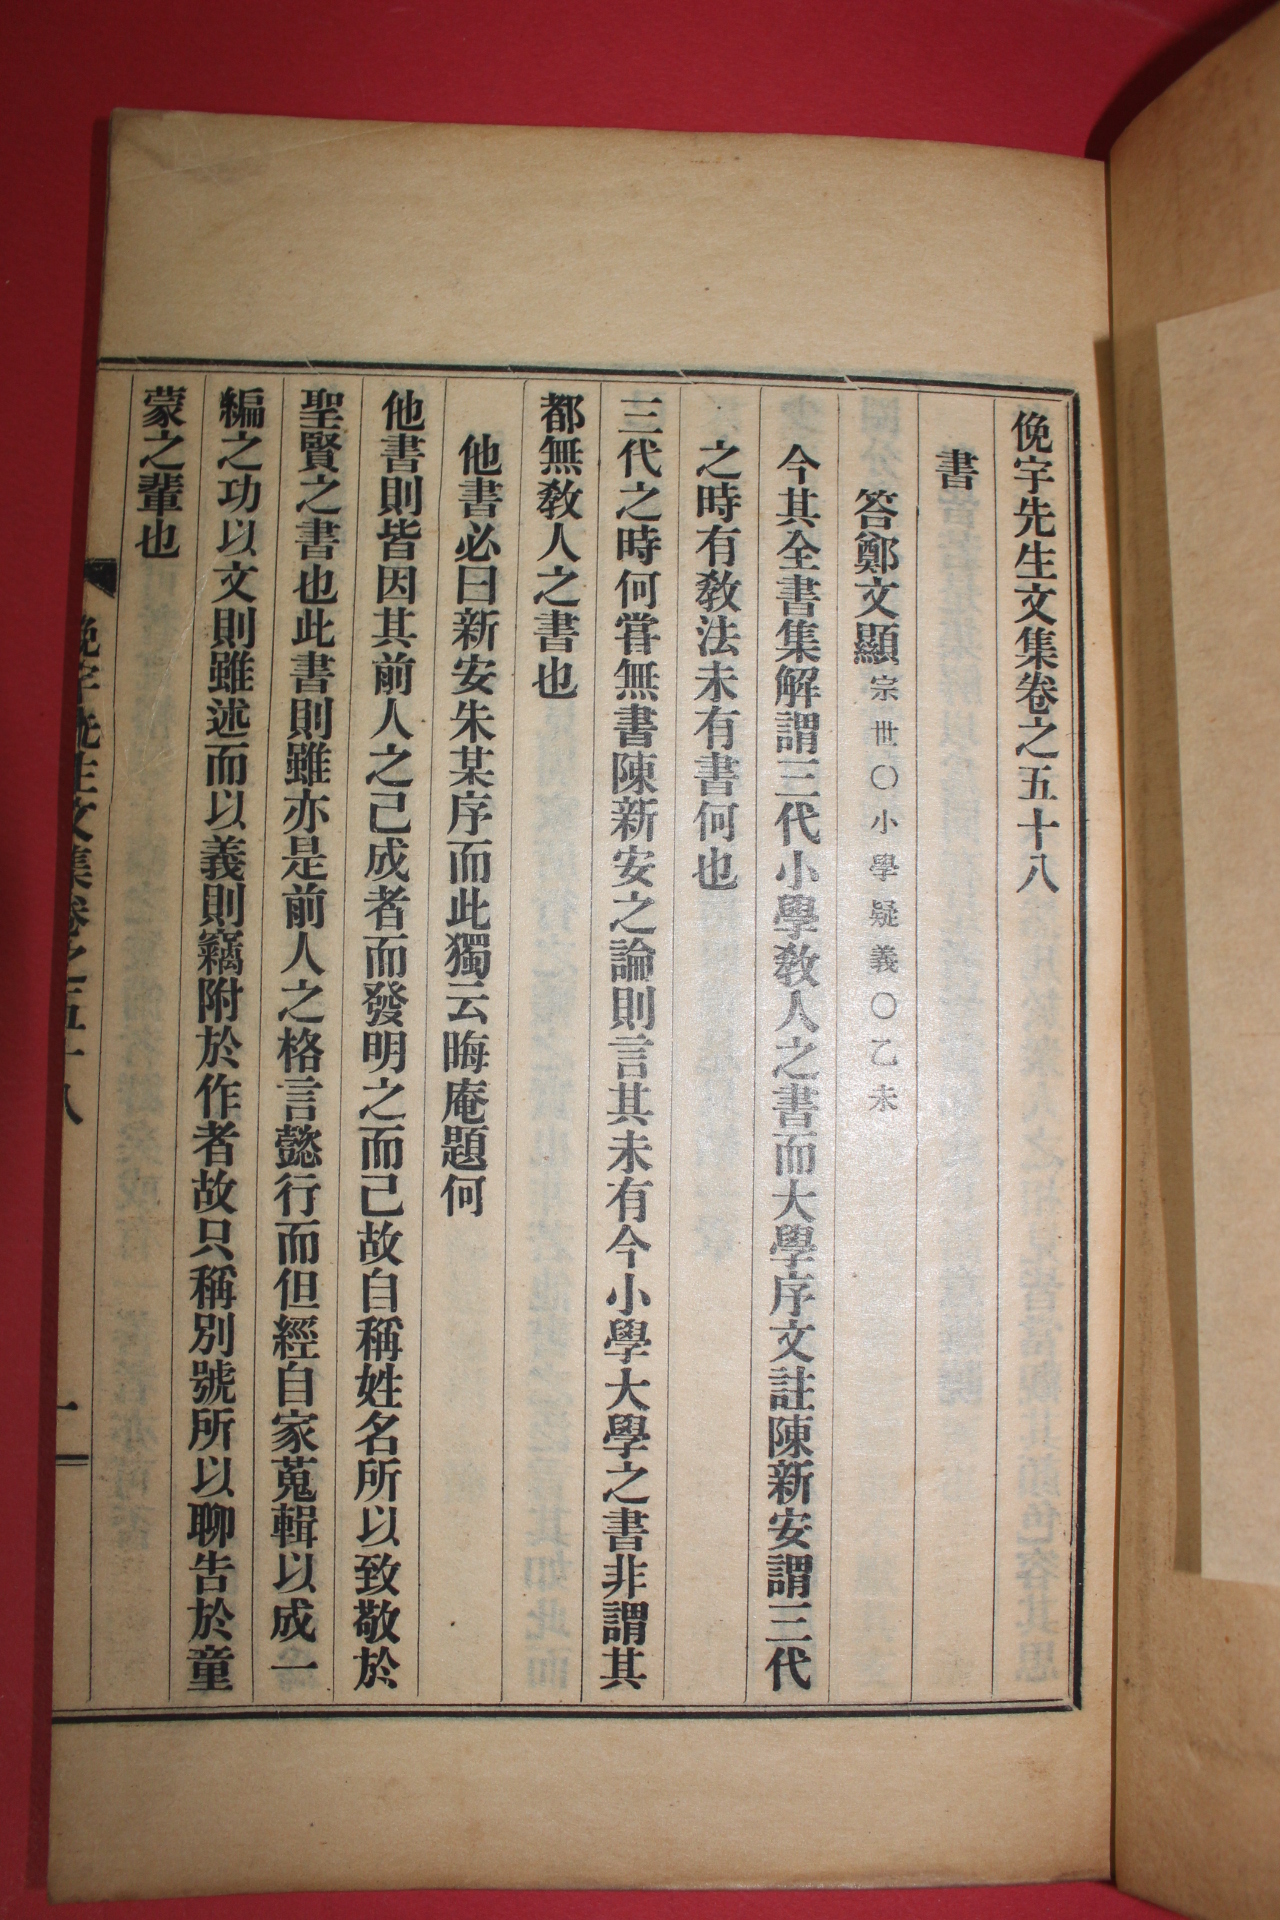 俛宇先生文集卷之五十八
書
答鄭文顯宗世○小學疑義○乙未
今其全書集解謂三代小學敎人之書而大學序文註陳新安謂三代
之時有敎法未有書何也
三代之時何嘗無書陳新安之論則言其未有今小學大學之書非謂其
都無敎人之書也
他書必曰新安朱某序而此獨云晦庵題何
他書則皆因其前人之已成者而發明之而已故自稱姓名所以致敬於
聖賢之書也此書則雖亦是前人之格言懿行而但經自家蒐輯以成一
編之功以文則雖述而以義則竊附於作者故只稱別號所以聊告於童
蒙之輩也
俛宇先生文集卷之五十八
一